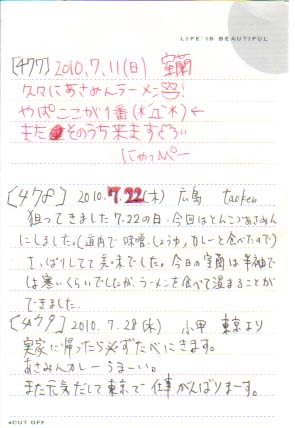 LIFE IS BEAUTIFUL
[477] 2010.7.11(日) 室蘭
久々にあさめんラーメン!
やぱここが1番(*´Д`*)←
またそのうち来ますぐろぃ
にゃっぴー
[478] 2010.7.22(木) 広島 taoken
狙ってきました7.22の日。今回はとんこつあさめん
にしました。(道内で味噌、しょうゆ、カレーと食べたので)
さっぱりしてて美味でした。今日の室蘭は半袖
では寒いくらいでしたが、ラーメンを食べて温まることが
できました。
[479] 2010.7.28(水) 小甲 東京より
実家に帰ったら必ずたべにきます。
あさめんカレーうまーい。
また元気だして東京で仕事がんばりまーす。
◀CUT OFF